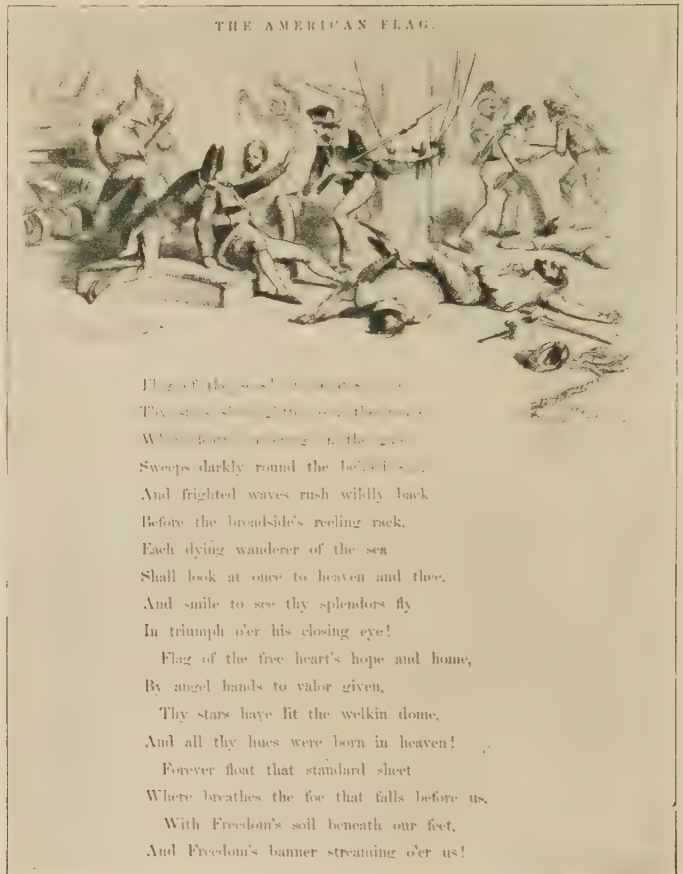 THE AMERICAN FLAG.
Flag of the
Thy stars
the
Sweeps darkly round the
And frighted waves rush wildly back
Before the broadside's reeling rack,
Each dying wanderer of the sea
Shall look at once to heaven and thee,
And smile to see thy splendors fly
In triumph o'er his closing eye!
Flag of the free heart's hope and home,
By angel hands to valor given,
Thy stars have lit the welkin dome,
And all thy hues were born in heaven!
Forever float that standard sheet
Where breathes the foe that falls before us,
With Freedom's soil beneath our feet,
And Freedom's banner streaming o'er us!